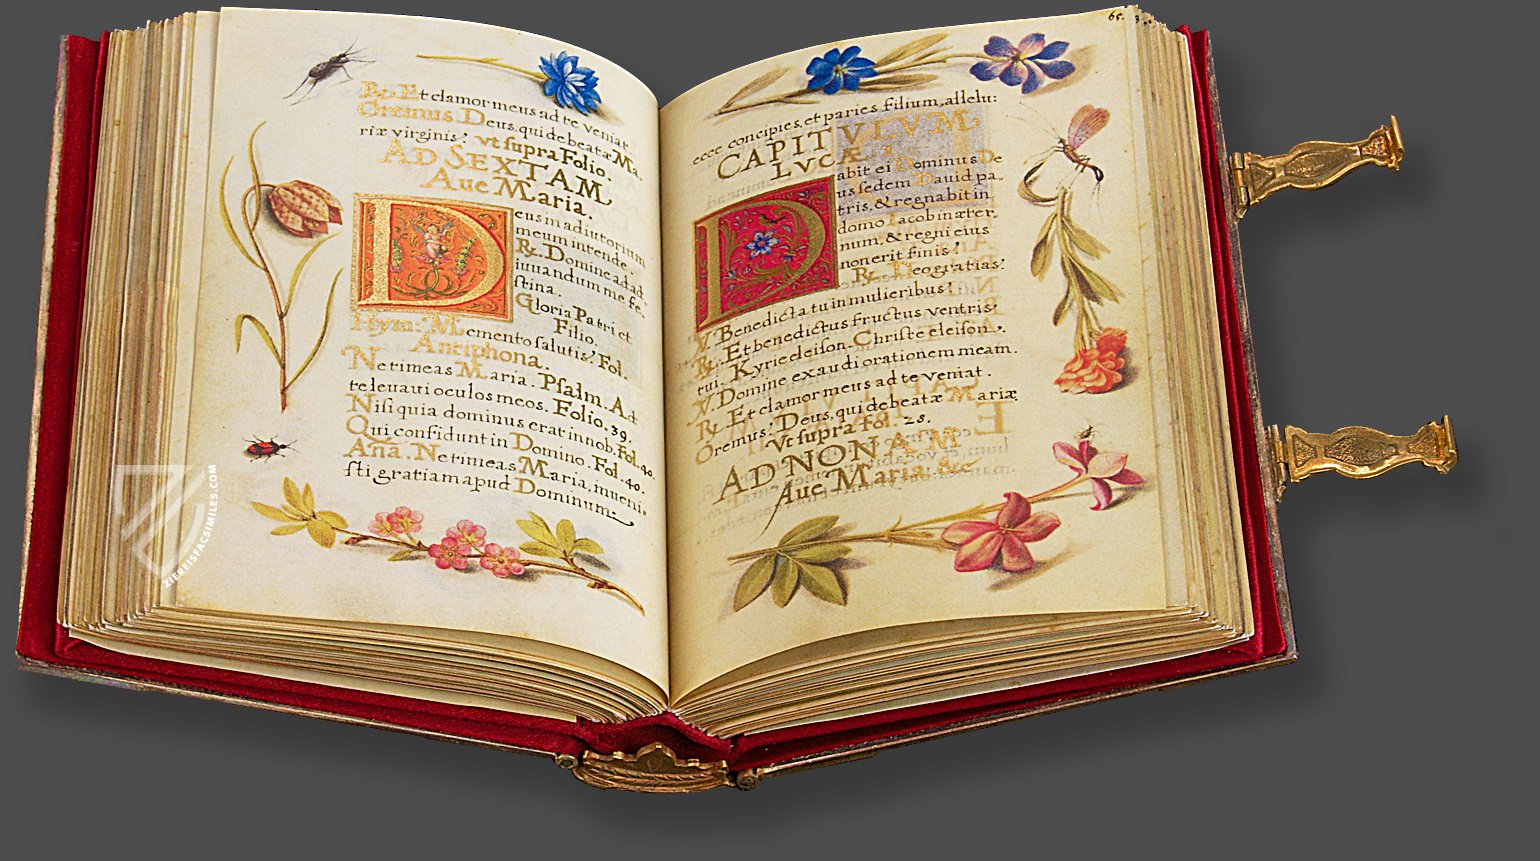 ℟. Et clamor meus ad te veniat.
Oremus. Deus, qui de beatæ Ma-
riæ virginis: vt supra Folio.
AD SEXTAM
Aue Maria.
Deus in adiutorium
meum intende.
℟. Domine ad ad-
iuuandum me fe-
stina.
Gloria Patri et
Filio.
Hym: Memento salutis: Fol.
Antiphona.
Ne timeas Maria. Psalm. Ad
te leuaui oculos meos. Folio. 39.
Nisi quia dominus erat in nob. Fol. 40
Qui confidunt in Domino. Fol. 40.
Aña. Ne timeas Maria, inueni-
sti gratiam apud Dominum.
ZIEREISFACSIMILES.COM
65.
ecce concipies, et paries filium, allelu:
CAPITVLVM
LVCÆ
Dabit ei Dominus De
us sedem Dauid pa-
tris, & regnabit in
domo Iacob in æter-
num, & regni eius
non erit finis:
℟. Deo gratias:
V. Benedicta tu in mulieribus:
℟. Et benedictus fructus ventris
tui. Kyrie eleison. Christe eleison.
V. Domine exaudi orationem meam.
℟. Et clamor meus ad te veniat.
Oremus: Deus, qui de beatæ Mariæ
Vt supra Fol. 28.
AD NONAM
Aue Maria. &c